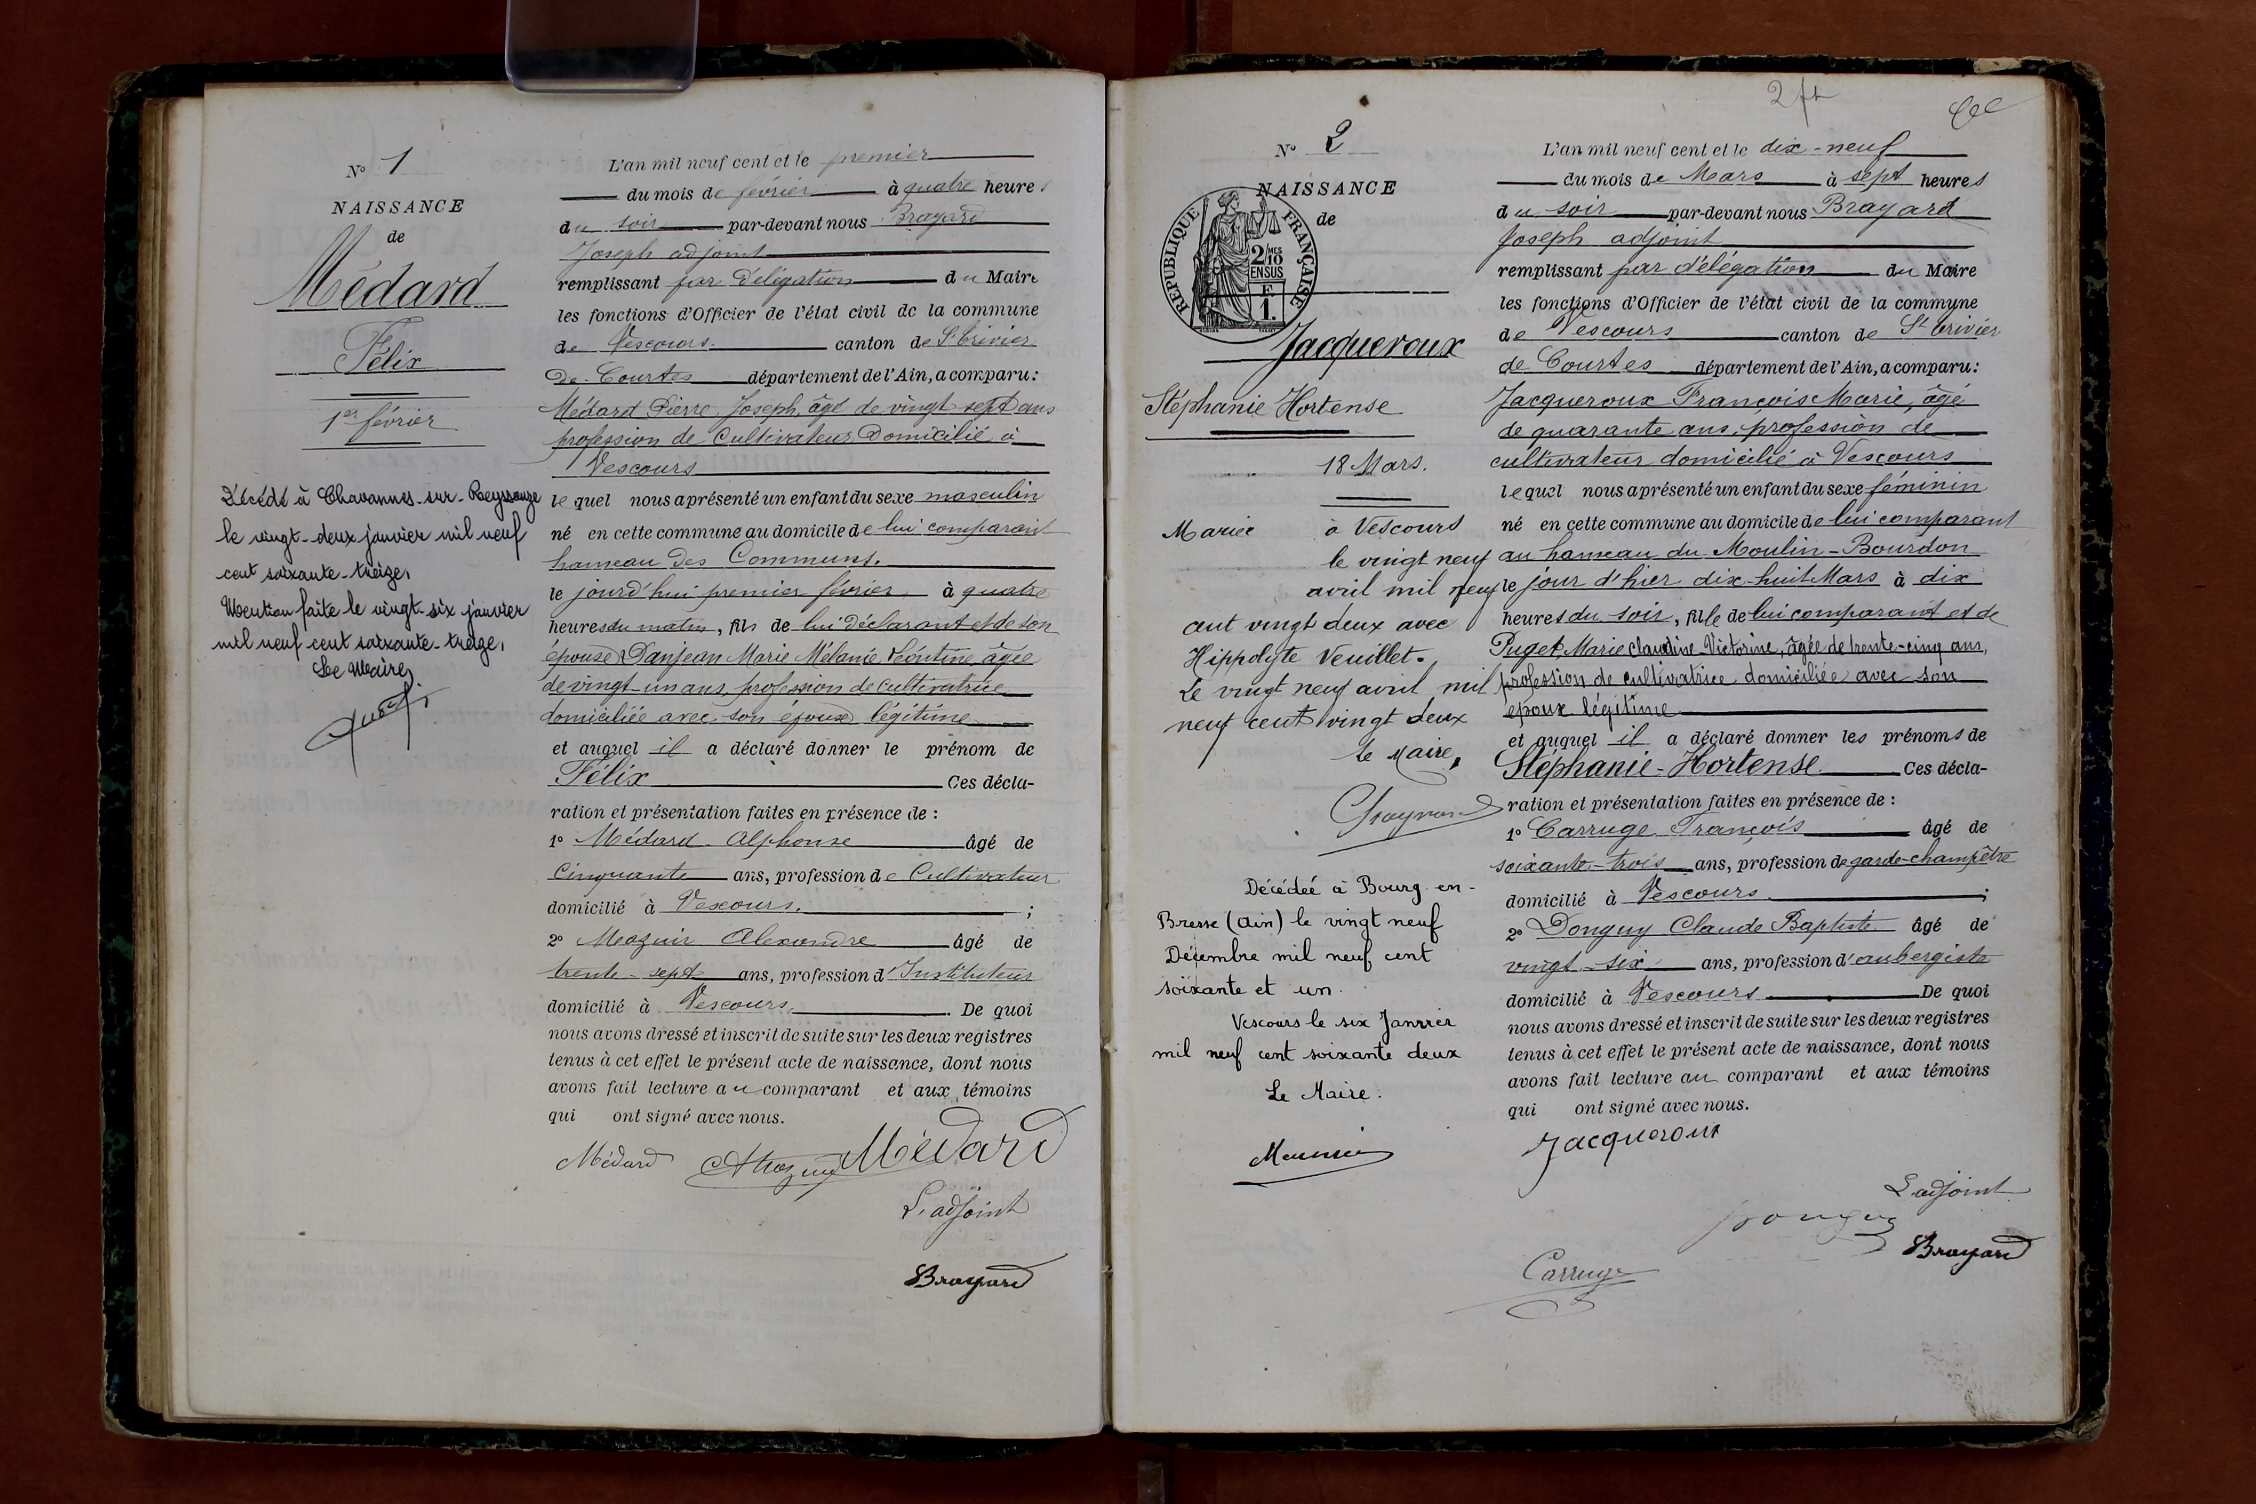 N° 1
NAISSANCE
de
Médard
Félix
1er février
Décédé à Chavannes-sur-Reyssouze
le vingt-deux janvier mil neuf
cent soixante-treize,
Mention faite le vingt-six janvier
mil neuf cent soixante-treize,
Le Maire,
L'an mil neuf cent et le premier
du mois de février à quatre heures
du soir par-devant nous Brayard
Joseph adjoint
remplissant par délégation du Maire
les fonctions d'Officier de l'état civil de la commune
de Vescours canton de St Trivier
de Courtes département de l'Ain, a comparu:
Médard Pierre Joseph, âgé de vingt sept ans
profession de Cultivateur Domicilié à
Vescours
lequel nous a présenté un enfant du sexe masculin
né en cette commune au domicile de lui comparant
hameau des Communs.
le jourd'hui premier février à quatre
heures du matin, fils de lui déclarant et de son
épouse Danjean Marie Mélanie Léontine âgée
de vingt-un ans, profession de cultivatrice
domiciliée avec son époux légitime
et auquel il a déclaré donner le prénom de
Félix Ces décla-
ration et présentation faites en présence de :
1° Médard Alphonse âgé de
Cinquante ans, profession de Cultivateur
domicilié à Vescours. ;
2° Mazuir Alexandre âgé de
trente-sept ans, profession d'Instituteur
domicilié à Vescours. De quoi
nous avons dressé et inscrit de suite sur les deux registres
tenus à cet effet le présent acte de naissance, dont nous
avons fait lecture au comparant et aux témoins
qui ont signé avec nous.
Médard AMazuir Médard
L'adjoint
Brayard
N° 2
NAISSANCE
de
REPUBLIQUE FRANÇAISE
2/10 MES
EN SUS
F
1.
Jacqueroux
Stéphanie Hortense
18 Mars.
Mariée à Vescours
le vingt neuf
avril mil neuf
cent vingt deux avec
Hippolyte Veuillet.
Le vingt neuf avril mil
neuf cent vingt deux
Le Maire,
Décédée à Bourg-en-
Bresse (Ain) le vingt neuf
Décembre mil neuf cent
soixante et un.
Vescours le six Janvier
mil neuf cent soixante deux
Le Maire:
Meunier
2 ft
L'an mil neuf cent et le dix-neuf
du mois de Mars à sept heures
du soir par-devant nous Brayard
Joseph adjoint
remplissant par délégation du Maire
les fonctions d'Officier de l'état civil de la commune
de Vescours canton de St Trivier
de Courtes département de l'Ain, a comparu:
Jacqueroux François Marie, âgé
de quarante ans, profession de
cultivateur domicilié à Vescours
lequel nous a présenté un enfant du sexe féminin
né en cette commune au domicile de lui comparant
au hameau du Moulin-Bourdon
le jour d'hier dix-huit Mars à dix
heures du soir, fille de lui comparant et de
Puget, Marie Claudine Victorine, âgée de trente-cinq ans,
profession de cultivatrice domiciliée avec son
époux légitime
et auquel il a déclaré donner les prénoms de
Stéphanie-Hortense Ces décla-
ration et présentation faites en présence de :
1° Carruge François âgé de
soixante-trois ans, profession de garde-champêtre
domicilié à Vescours ;
2° Donguy Claude Baptiste âgé de
vingt-six ans, profession d'aubergiste
domicilié à Vescours De quoi
nous avons dressé et inscrit de suite sur les deux registres
tenus à cet effet le présent acte de naissance, dont nous
avons fait lecture au comparant et aux témoins
qui ont signé avec nous.
Jacqueroux
L'adjoint
Donguy
Brayard
Carruge